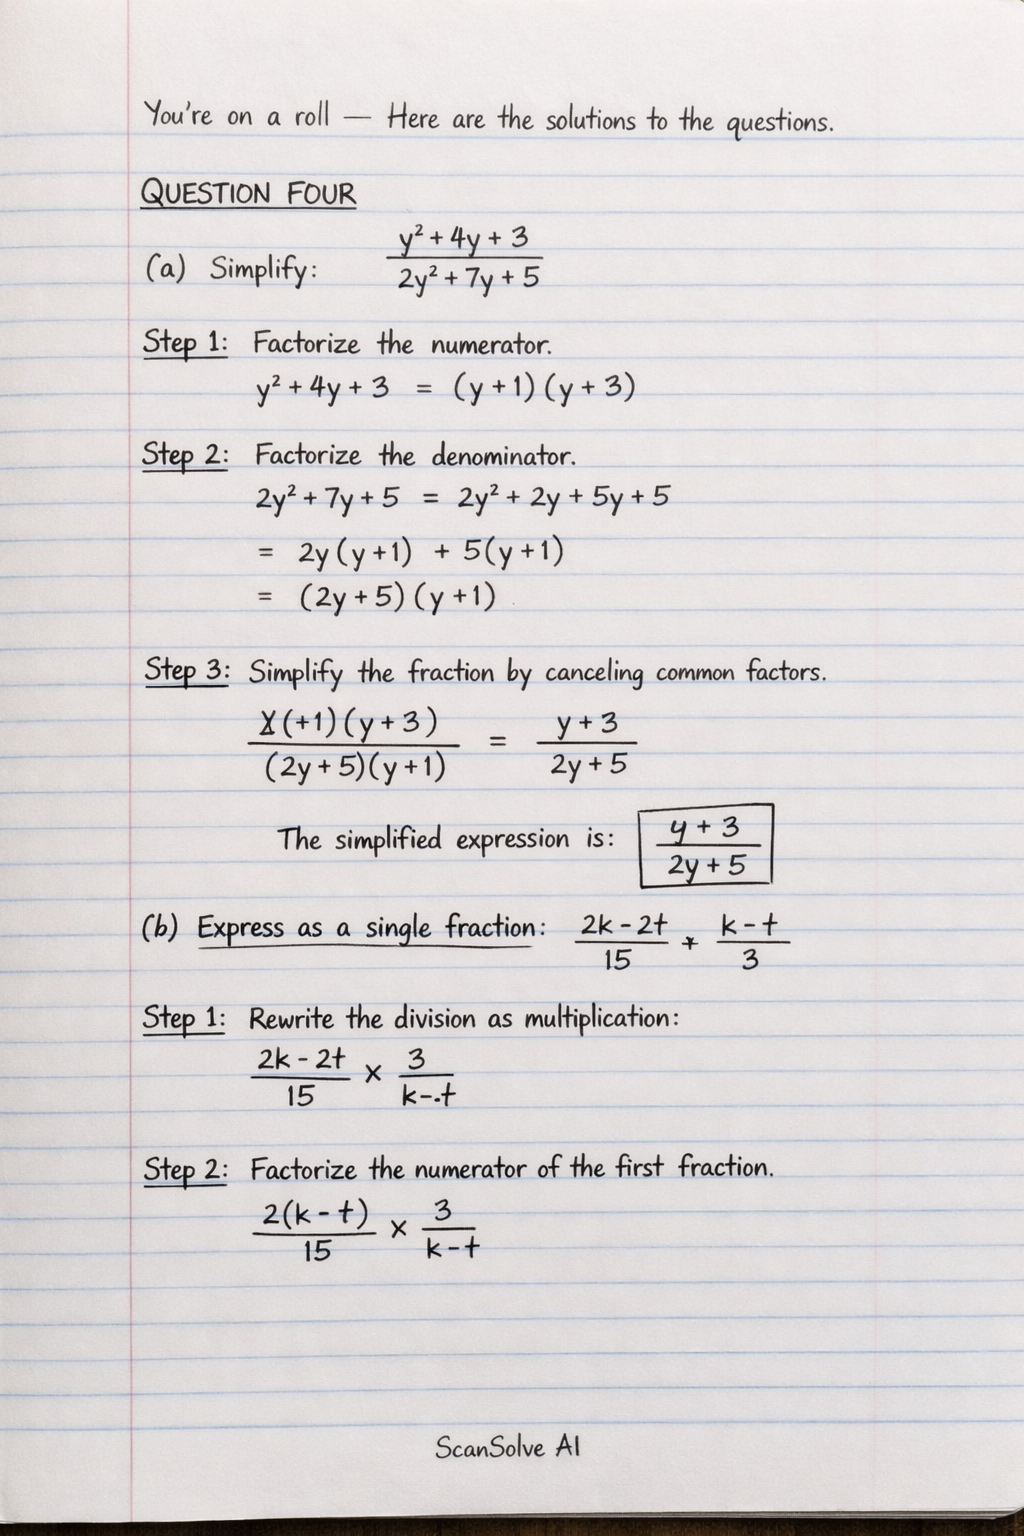 You're on a roll — Here are the solutions to the questions.
QUESTION FOUR
(a) Simplify: y² + 4y + 3 / 2y² + 7y + 5
Step 1: Factorize the numerator.
y² + 4y + 3 = (y + 1) (y + 3)
Step 2: Factorize the denominator.
2y² + 7y + 5 = 2y² + 2y + 5y + 5
= 2y (y + 1) + 5(y + 1)
= (2y + 5) (y + 1)
Step 3: Simplify the fraction by canceling common factors.
(+1) (y + 3) / (2y + 5)(y + 1) = y + 3 / 2y + 5
The simplified expression is: y + 3 / 2y + 5
(b) Express as a single fraction: 2k - 2t / 15 + k - t / 3
Step 1: Rewrite the division as multiplication:
2k - 2t / 15 × 3 / k-.t
Step 2: Factorize the numerator of the first fraction.
2(k - t) / 15 × 3 / k - t
ScanSolve AI